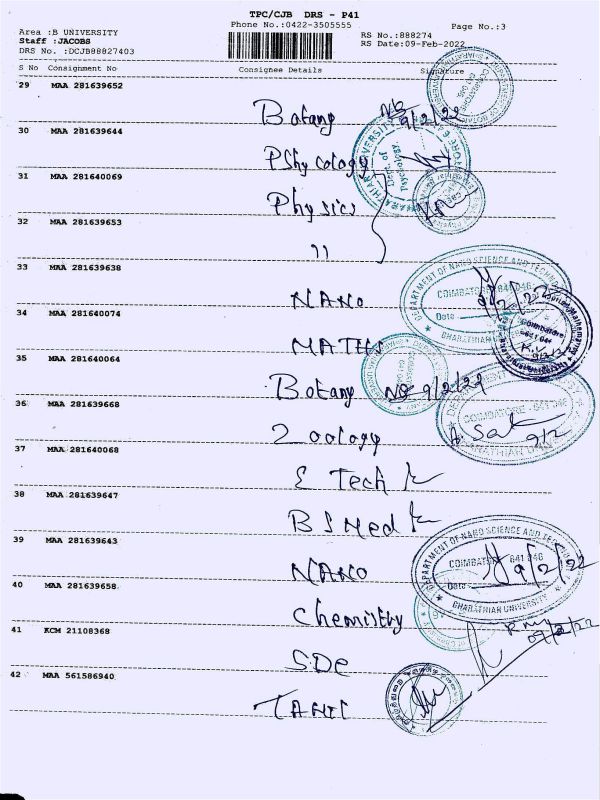 TPC/CJB DRS - P41
Phone No.:0422-3505555
Page No.:3
Area :B UNIVERSITY
Staff :JACOBS
DRS No. :DCJB88827403
RS No.:888274
RS Date:09-Feb-2022
S No Consignment No Consignee Details Signature
29 MAA 281639652
Botany 9/2/22
30 MAA 281639644
PShycology
31 MAA 281640069
Physics
32 MAA 281639653
11
33 MAA 281639638
NANO
DEPARTMENT OF NANO SCIENCE AND TECHNOLOGY
COIMBATORE 641 046
Date
BHARATHIAR UNIVERSITY
34 MAA 281640074
MATHS
35 MAA 281640064
Botany 9/2/22
36 MAA 281639668
Zoology
COIMBATORE - 641 046
9/2
37 MAA 281640068
E Tech
38 MAA 281639647
B S Med
39 MAA 281639643
NANO
DEPARTMENT OF NANO SCIENCE AND TECHNOLOGY
COIMBATORE 641 046
9/2/22
BHARATHIAR UNIVERSITY
40 MAA 281639658
Chemistry
09/2/22
41 KCM 21108368
SDE
42 MAA 561586940
TAMIL